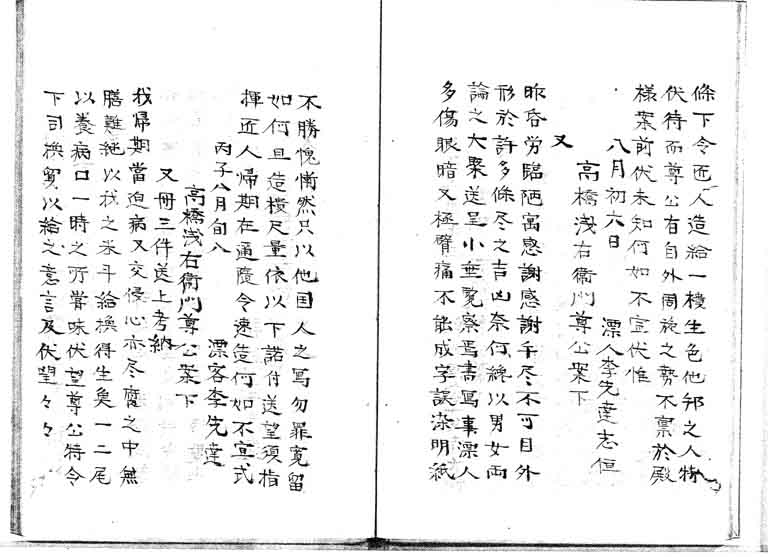 條下令匠人造給一樻生色他邦之人特
伏待而尊公有自外周旋之勢不禀於殿
樣案前伏未知何如不宣伏惟
八月初六日　漂人李先達志恒
高橋浅右衞門尊公案下
又
昨吝労臨陋寓感謝感謝千尽不可目外
形於許多條尽之吉凶奈何綂以男女両
論之大槩送呈小垂覧察焉書冩事漂人
多傷眼暗又極臂痛不能成字誤染明紙
不勝愧慚然只以他国人之冩勿罪寛留
如何且造樻尺量依以下諾付送望須指
揮匠人帰期在邇隆令速造何如不宣式
丙子八月旬八　漂客李先達
高橋浅右衞門尊公案下
又冊三件送上考納
我帰期當迫病又交侵心亦尽腐之中無
膳難絶以我之米斗給換得生矣一二尾
以養病口一時之所嘗味伏望尊公特令
下司換買以給之意言及伏望々々